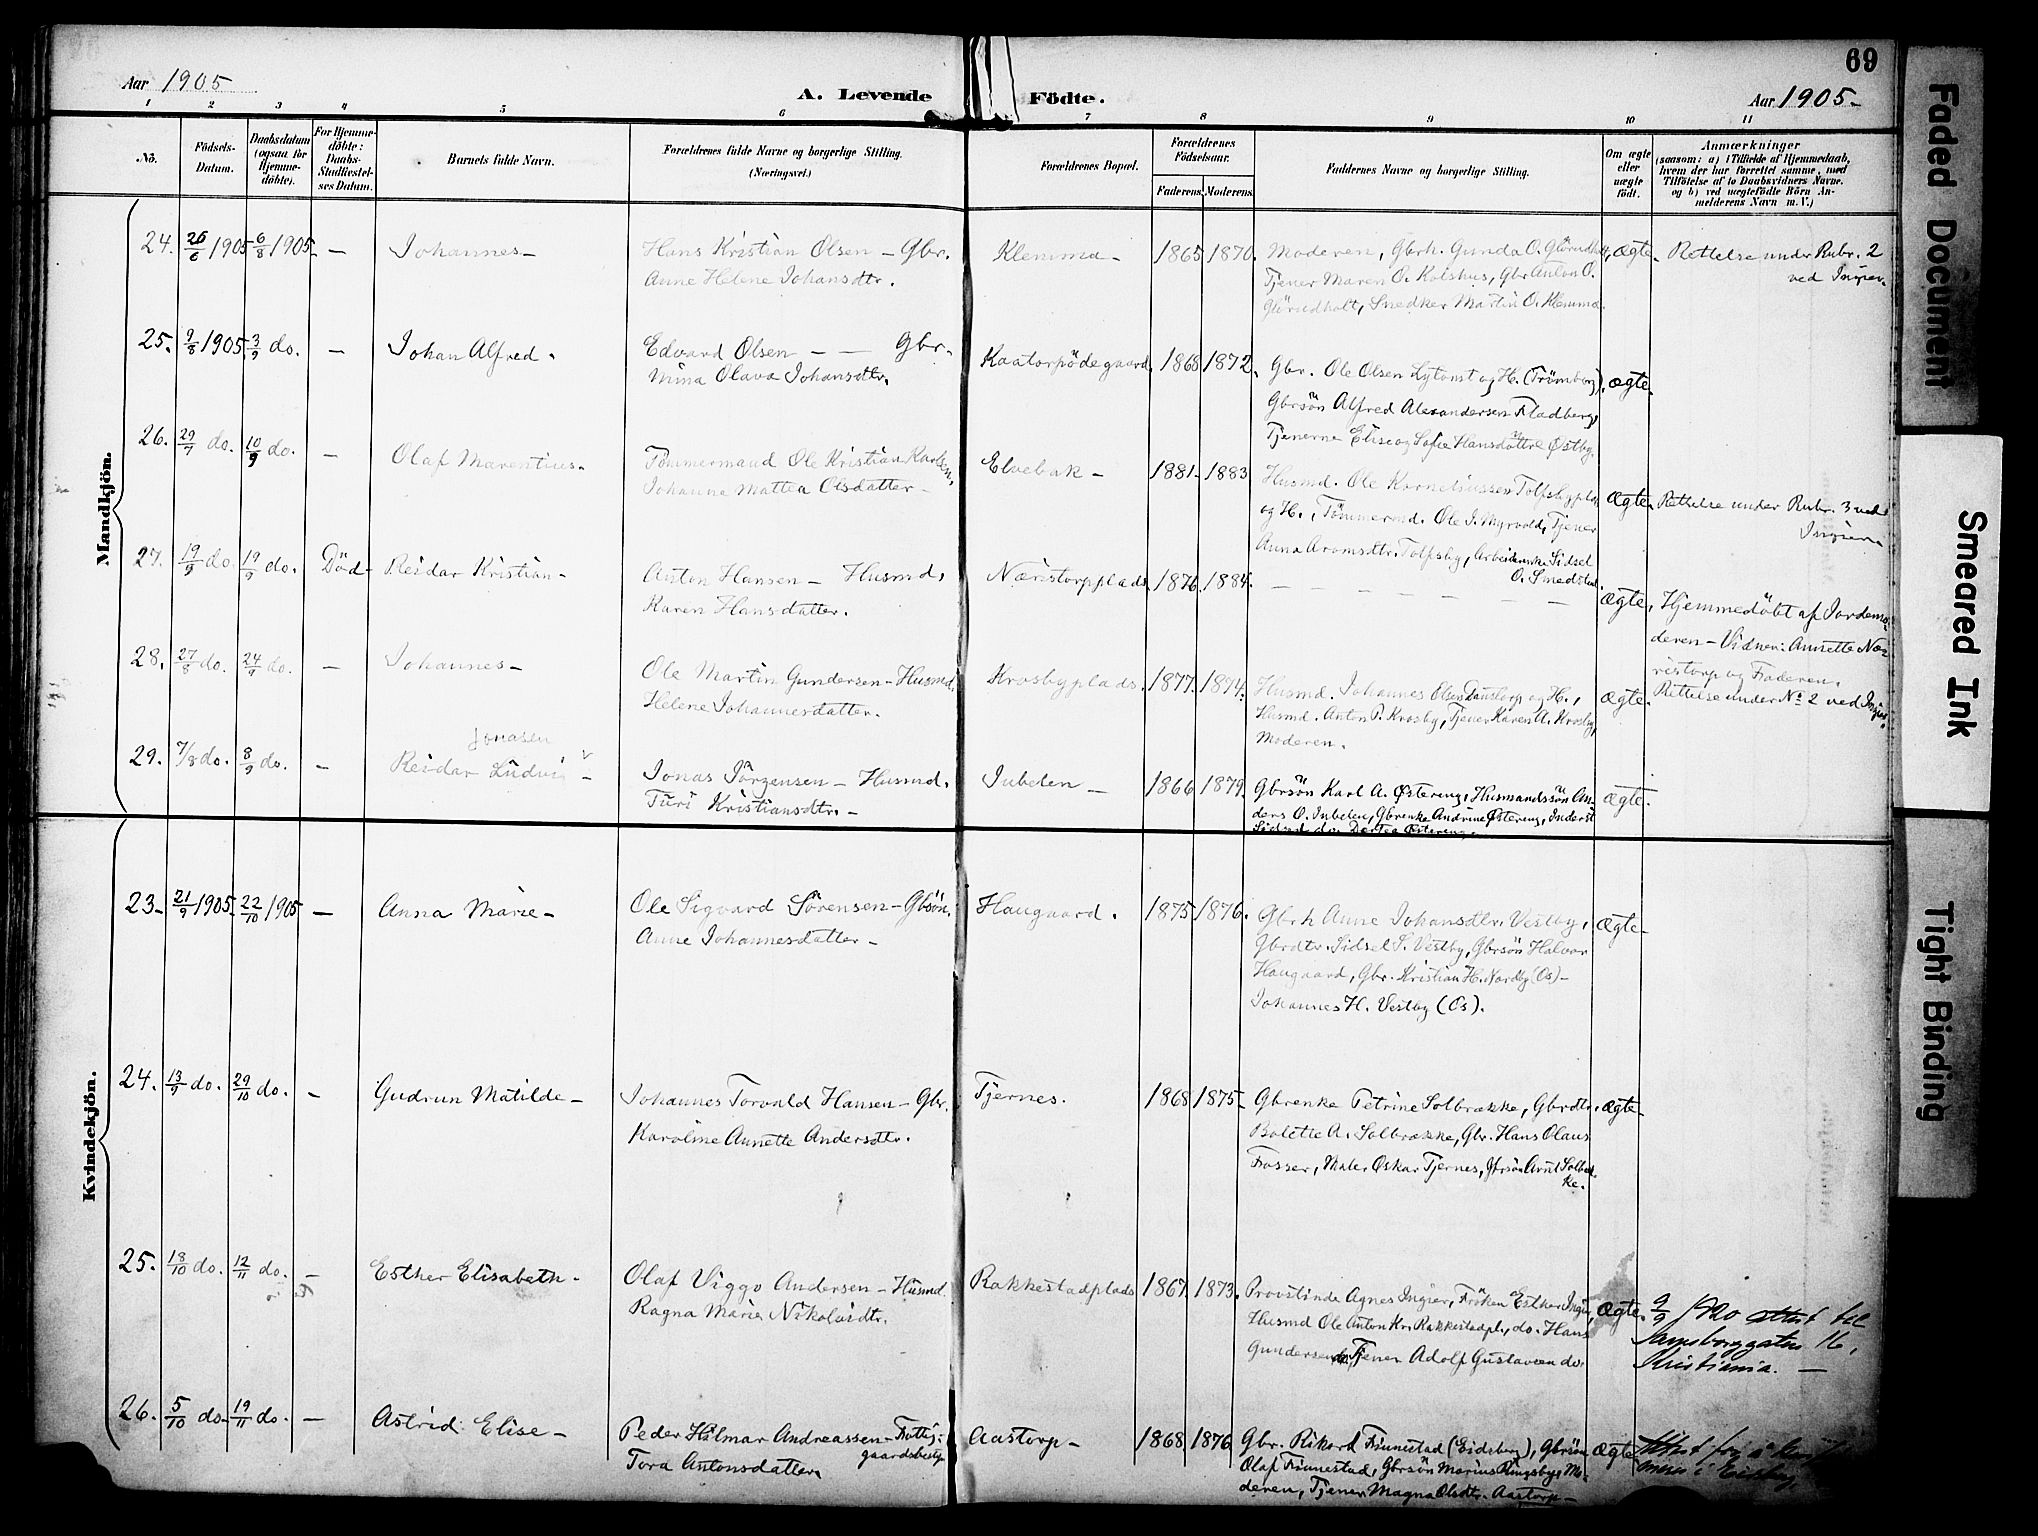 69
Aar 1905
A. Levende
Födte.
Aar 1905 -
1 2 3 4 5 6 7 8 9 10 11
No.
Födsels-
Datum.
Daabsdatum
(ogsaa for
Hjemme-
döbte).
For Hjemme-
döbte:
Daabs-
Stadfæstel-
ses Datum.
Barnets fulde Navn.
Forældrenes fulde Navne og borgerlige Stilling.
(Næringsvei.)
Forældrenes Bopæl.
Forældrenes
Födselsaar.
Faderens. Moderens.
Faddernes Navne og borgerlige Stilling.
Om ægte
eller
uægte
födt.
Anmærkninger
(saasom: a) i Tilfælde af Hjemmedaab,
hvem der har forrettet samme, med
Tilföielse af to Daabsvidners Navne.
og b) ved uægtefödte Börn An-
melderens Navn m. V.)
Mandkjön.
24. 26/6 1905 6/8 1905. - Johannes - Hans Kristian Olsen - Gbr.
Anne Helene Johansdtr.
Klemma - 1865 1870. Moderen, Gbrh. Gunda O.
Tjener Maren O. Kolshus, Gbr Anton O.
Glörudholt, Snedker Martin O. Klemma.
ægte. Rettelse under Rubr. 2
ved Ingier.
25. 9/8 1905 3/9 do. - Johan Alfred. Edvard Olsen - - Gbr.
Mina Olava Johansdtr.
Kaatorpödegaard. 1868 1872. Gbr. Ole Olsen Lytomt og H. (Trömborg),
Gbrsön Alfred Alexandersen Fladberg,
Tjenerne Elise og Sofie Hansdöttre Østby.
ægte.
26. 29/7 do. 10/9 do. - Olaf Marentius - Tömmermand Ole Kristian Karlsen,
Johanne Mattea Olsdatter -
Elvebak - 1881 - 1883 Husmd. Ole Korneliussen Tolfsbyplads
og H., Tömmermd. Ole J. Myrvold, Tjener
Anna Aromsdtr. Tolfsby, Arbeiderenke Sidsel
O. Smedstad.
ægte. Rettelse under Rubr. 3 ved
Ingier.
27. 19/9 do. 19/9 do. Död - Reidar Kristian - Anton Hansen - Husmd,
Karen Hansdatter.
Næristorpplads. 1876 1884. - - - - - - -
ægte. Hjemmedöbt af Jordemo-
deren - Vidner: Annette Næ-
ristorp og Faderen.
28. 27/8 do. 24/9 do. - Johannes - Ole Martin Gundersen - Husmd.
Helene Johannesdatter.
Krosbyplads. 1877. 1874. Husmd. Johannes Olsen Daustorp og H.,
Husmd. Anton P. Krosby, Tjener Karen A. Krosby,
Moderen.
ægte. Rettelse under No 2 ved Ingier.
29. 7/8 do. 8/9 do. - Jonasen
Reidar Ludvig - Jonas Jörgensen - Husmd.
Turi Kristiansdtr. -
Jubelen - 1866 1879. Gbrsön Karl A. Østereng, Husmandssön An-
ders O. Jubelen, Gbrenke Andrine Østereng, Inderst
ægte.
Kvindekjön.
23 - 21/9 1905. 22/10 1905 - Anna Marie - Ole Sigvard Sörensen - Gbsön.
Anne Johannesdatter -
Haugaard. 1875 1876. Gbrh Anne Johansdtr. Vestby,
Gbrdtr. Sidsel S. Vestby, Gbrsön Halvor
Haugaard, Gbr. Kristian H. Nordby (Os) -
Johannes H. Vestby (Os).
ægte -
24. 13/9 do. 29/10 do. - Gudrun Matilde - Johannes Torvald Hansen - Gbr.
Karoline Annette Andersdtr.
Tjernes. 1868 1875 - Gbrenke Petrine Solbrække, Gbrdtr.
Bolette A. Solbrække, Gbr. Hans Olaus
Fosser, Maler Oskar Tjernes, Gbrsön Arnt Solbræk-
ke.
ægte -
25. 18/10 do. 12/11 do. - Esther Elisabeth - Olaf Viggo Andersen - Husmd.
Ragna Marie Nikolaidtr.
Rakkestadplads 1867. 1873. Provstinde Agnes Ingier, Fröken Esther Ingier,
Husmd Ole Anton Kr. Rakkestadpl., do. Hans
Gundersen do, Tjener Adolf Gustavsen do.
ægte. 9/9 1920 attest tel
16,
Kristiania. -
26. 5/10 do - 19/11 do. - Astrid Elise - Peder Hilmar Andreassen - Fattig-
gaardsbesty.
Tora Antonsdatter.
Aastorp - 1868 1876 Gbr. Rikard Finnestad (Eidsberg), Gbrsön
Olaf Finnestad, Gbrsön Marius Ringsby, Mo-
deren, Tjener Magna Olsdtr. Aastorp -
ægte -
Faded Document
Smeared Ink
Tight Binding